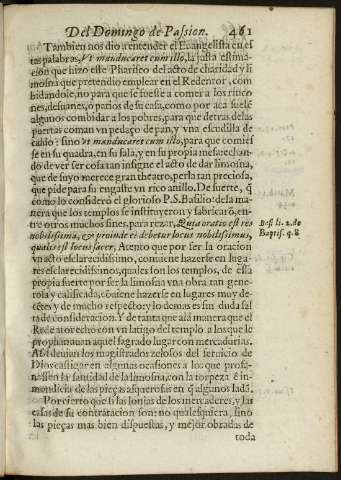 Del Domingo de Passion. 461
Tambien nos dio a entender el Euangelista en es
tas palabras, Vt manducaret cum illo, la justa estima-
cion que hizo este Phariseo del acto de charidad y li
mosna que pretendio emplear en el Redentor, com
bidandole, no para que se fuesse a comer a los rinco
nes, desuanes, o patios de su casa, como por aca suelẽ
algunos combidar a los pobres, para que detras de las
puertas coman vn pedaço de pan, y vna escudilla de
caldo: sino vt manducaret cum illo, para que comies
se en su quadra, en su sala, y en su propia mesa: echan-
do de ver ser cosa tan insigne el acto de dar limosna,
que de suyo merece gran theatro, perla tan preciosa,
que pide para su engaste vn rico anillo. De suerte, q̃
como lo considerò el glorioso P. S. Basilio: de la ma
nera que los templos se instituyeron y fabricarõ, en-
tre otros muchos fines, para rezar, Quia oratio est res
nobilissima, & proinde ei debetur locus nobilissimus,
qualis est locus sacer, Atento que por ser la oracion
vn acto esclarecidissimo, conuiene hazerse en luga-
res esclarecidissimos, quales son los templos, de essa
propia suerte por ser la limosna vna obra tan gene-
rosa y calificada, cõuiene hazerse en lugares muy de-
cẽtes y de mucho respecto: y lo demas es sin duda fal
ta de consideracion. Y de tanta que a la manera que el
Redẽtor echò con vn latigo del templo a los que le
prophanauan aquel sagrado lugar con mercadurias.
Assi deuian los magistrados zelosos del seruicio de
Dios castigar en algunas ocasiones a los que profa-
nassen la santidad de la limosna, con la torpeza è in-
mundicia de las pieças asquerosas en q̃ algunos la dã.
Por cierto que si las lonjas de los mercaderes, y las
casas de su contratacion son: no qualesquiera, sino
las pieças mas bien dispuestas, y mejor obradas de
toda
Basi. li. 2. de
Baptis. q. 8